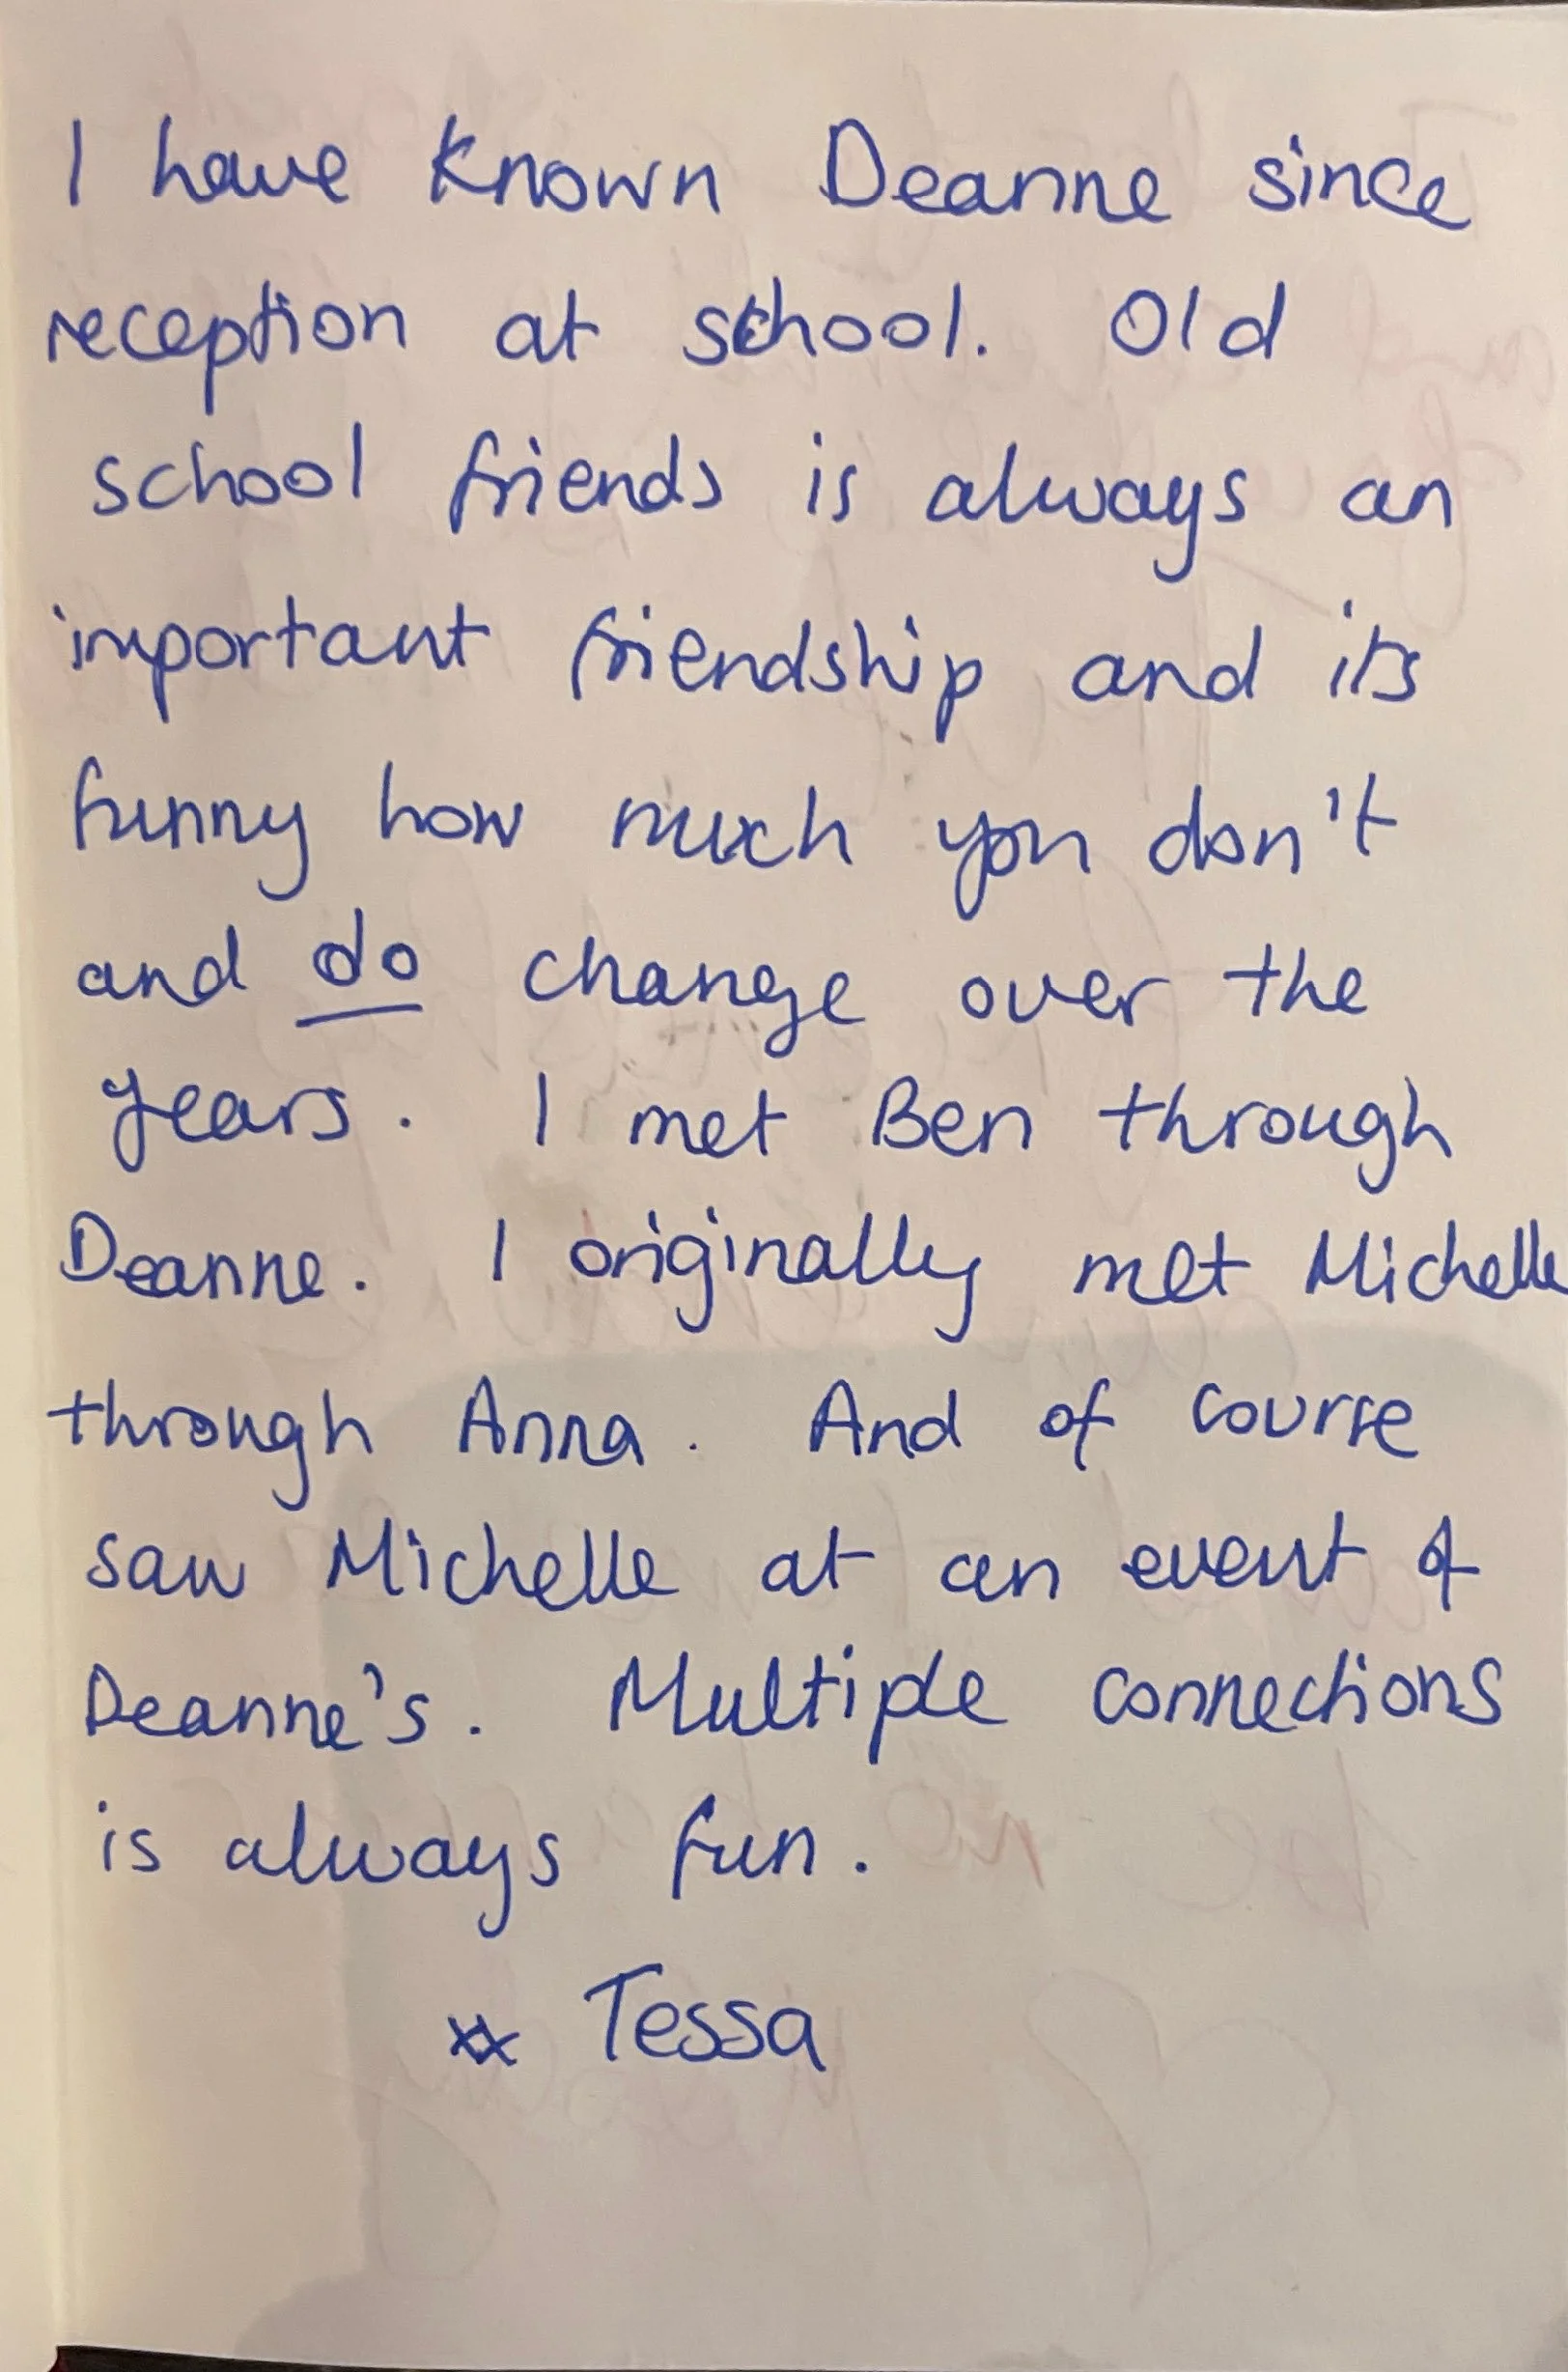 I have known Deanne since
reception at school. Old
school friends is always an
important friendship and its
funny how much you don't
and do change over the
years. I met Ben through
Deanne. I originally met Michelle
through Anna. And of course
saw Michelle at an event of
Deanne's. Multiple connections
is always fun.
xx Tessa